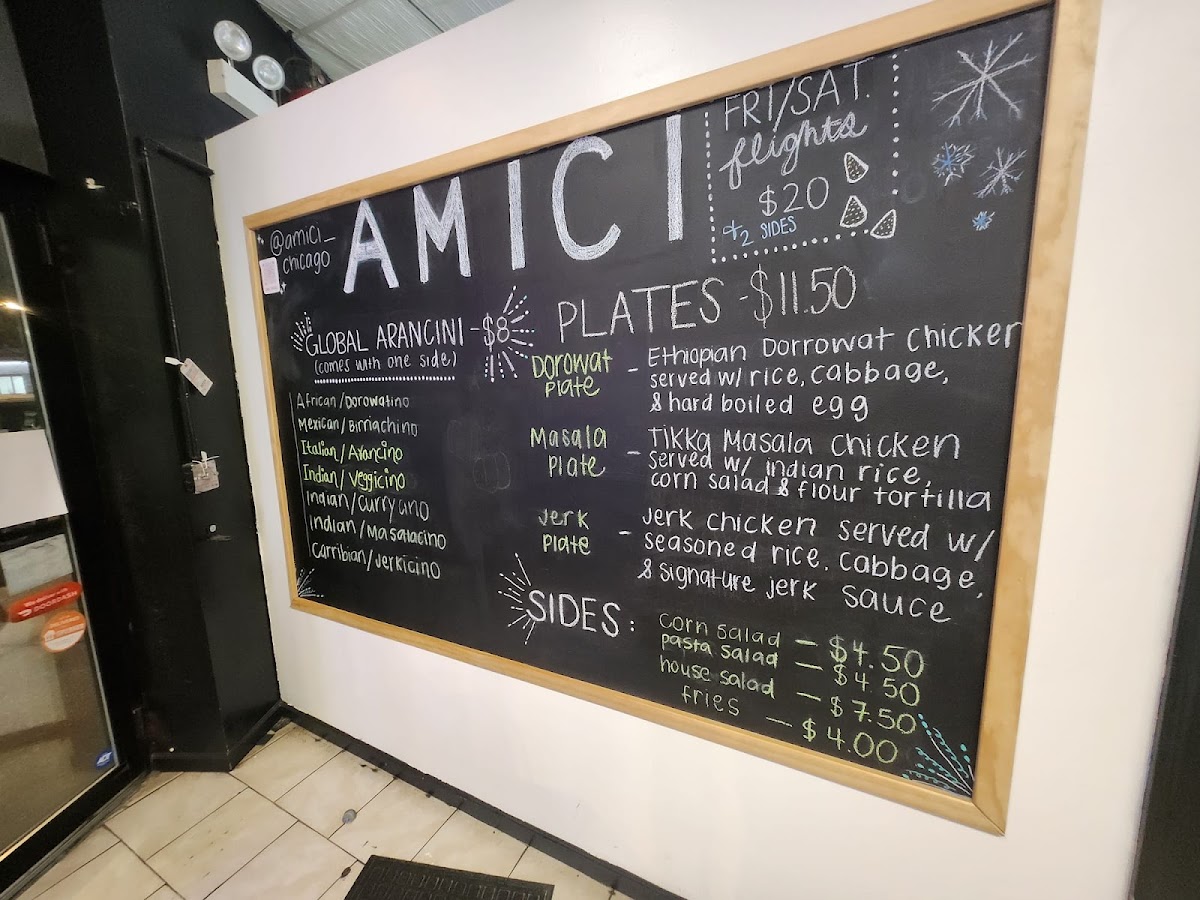 @amici_
chicago
AMICI
FRI/SAT.
flights
$20
+2 SIDES
GLOBAL ARANCINI -$8
(comes with one side)
African/Dorowatino
Mexican/Birriachino
Italian/Arancino
Indian/Veggicino
Indian/Curryano
Indian/Masalacino
Carribian/Jerkicino
PLATES -$11.50
Dorowat
Plate
- Ethiopian Dorrowat Chicken
served w/ rice, cabbage,
& hard boiled egg
Masala
Plate
- Tikka Masala Chicken
served w/ indian rice,
corn salad & flour tortilla
Jerk
Plate
- Jerk chicken served w/
seasoned rice, cabbage,
& signature jerk sauce
SIDES:
corn salad - $4.50
pasta salad - $4.50
house salad - $7.50
fries - $4.00
DOORDASH